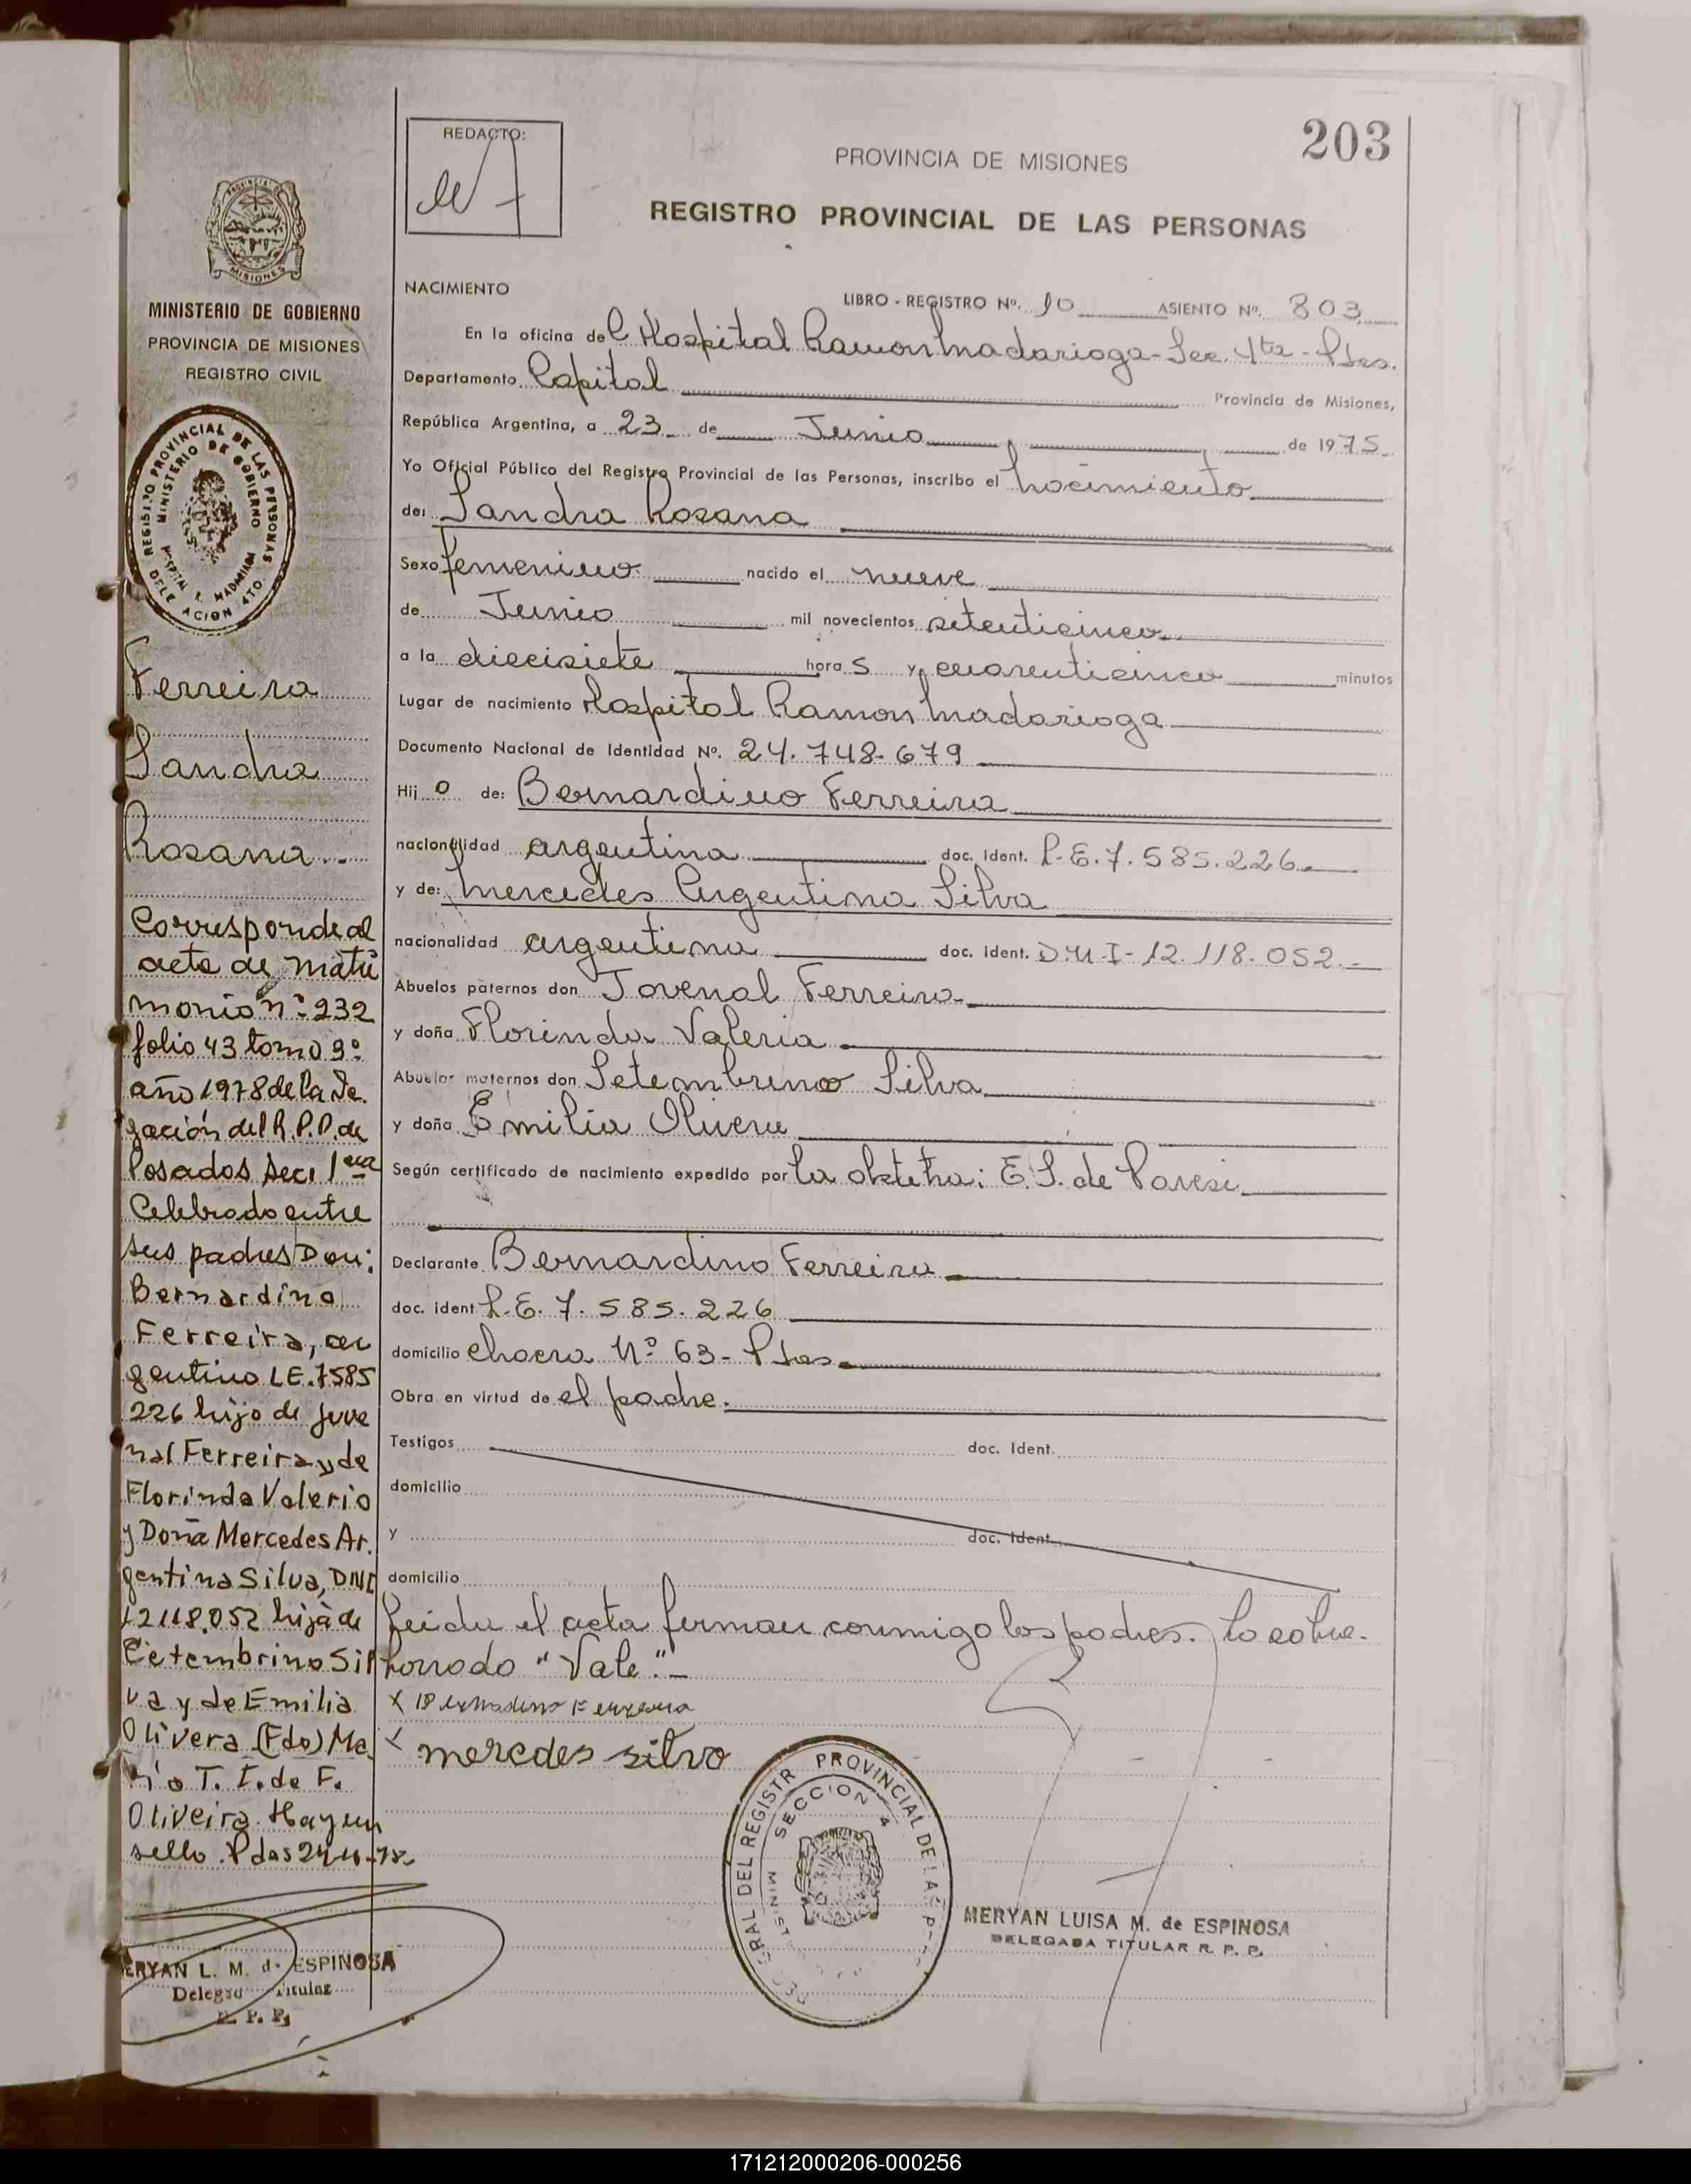 203
REDACTO:
PROVINCIA DE MISIONES
REGISTRO PROVINCIAL DE LAS PERSONAS
MISIONES
MINISTERIO DE GOBIERNO
PROVINCIA DE MISIONES
REGISTRO CIVIL
REGISTRO PROVINCIAL DE LAS PERSONAS
MINISTERIO DE GOBIERNO
HOSPITAL R. MADARIAGA
DELEGACION 4TO.
Ferreira
Sandra
Rosana.-
Corresponde al
acta de matri
monio nº 232
folio 43 tomo 3º
año 1978 de la De.
gación del R.P.P. de
Posadas Secc 1era
Celebrado entre
sus padres Don:
Bernardino
Ferreira, ar
gentino LE.7585
226 hijo de Juve
nal Ferreira y de
Florinda Valerio
y Doña Mercedes Ar.
gentina Silva, DNI
12118.052 hija de
Cetembrino Sil
va y de Emilia
Olivera (Fdo) Ma
T. F. de F.
Oliveira. Hay un
sello. Pdas
MERYAN L. M. de ESPINOSA
Delegada Titular
R. P. P.
NACIMIENTO
LIBRO - REGISTRO Nº. 10 ASIENTO Nº. 803
En la oficina del Hospital Ramon Madariaga - Sec. 4ta - Pdas.
Departamento Capital Provincia de Misiones,
República Argentina, a 23 de Junio de 1975
Yo Oficial Público del Registro Provincial de las Personas, inscribo el nacimiento
de: Sandra Rosana
Sexo femenino nacido el nueve
de Junio mil novecientos setenticinco
a la diecisiete horas y cuarenticinco minutos
Lugar de nacimiento Hospital Ramon Madariaga
Documento Nacional de Identidad Nº. 24.748.679
Hijo de: Bernardino Ferreira
nacionalidad argentina doc. ident. L.E.7.585.226
y de: Mercedes Argentina Silva
nacionalidad argentina doc. ident. D.N.I-12.118.052.-
Abuelos paternos don Jovenal Ferreira
y doña Florinda Valeria
Abuelos maternos don Setembrino Silva
y doña Emilia Olivera
Según certificado de nacimiento expedido por la obstetra: E.S. de Paresi
Declarante Bernardino Ferreira
doc. ident L.E. 7.585.226
domicilio chacra Nº 63 - Pdas
Obra en virtud de el padre.
Testigos doc. ident.
domicilio
y doc. ident.
domicilio
Leida el acta firman conmigo los padres. Lo sobre-
borrado "Vale".-
x Bernardino Ferreira
x mercdes silva
REGISTR PROVINCIAL DE LAS
SECCION 4
MERYAN LUISA M. de ESPINOSA
DELEGADA TITULAR R. P. P.
171212000206-000256